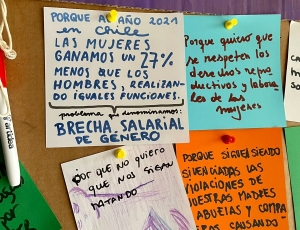 PORQUE AL AÑO 2021
en Chile
LAS MUJERES
GANAMOS UN 27%
MENOS QUE LOS
HOMBRES, REALIZAN-
DO IGUALES FUNCIONES.
problema que denominamos:
BRECHA SALARIAL
DE GÉNERO
Porque quiero que
se respeten los
derechos repro
ductivos y labora
les de las
mujeres
por que no quiero
que nos sigan
matando
PORQUE SIGUEN SIENDO
SILENCIADAS LAS
VIOLACIONES DE
NUESTRAS MADRES
ABUELAS Y COMPA
CAUSANDO